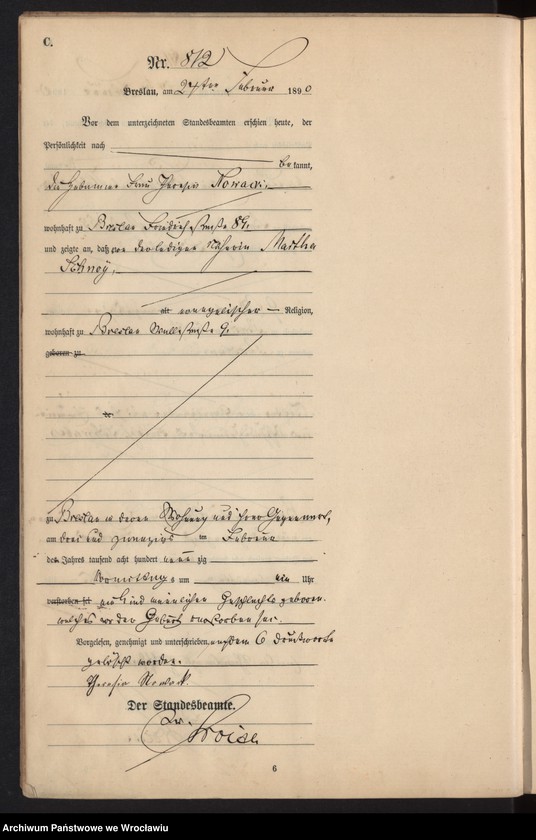 C.
Nr. 812
Breslau, am 24sten Februar 1890
Vor dem unterzeichneten Standesbeamten erschien heute, der
Persönlichkeit nach
bekannt,
die Hebamme Frau Theresia Nowack,
wohnhaft zu Breslau Friedrichstraße 84.
und zeigte an, daß von der ledigen Näherin Martha
alt evangelischer Religion,
wohnhaft zu Breslau Wallstraße 9.
geboren zu
de
zu Breslau in deren Wohnung und ihrer Gegenwart,
am drei und zwanzigs ten Februar
des Jahres tausend acht hundert neun zig
Vormittags um ein Uhr
verstorben sei ein Kind männlichen Geschlechts geboren
welches vor der Geburt verstorben sei.
Vorgelesen, genehmigt und unterschrieben 6 Druckworte
gelöscht worden.
Theresia Nowack.
Der Standesbeamte.
6
Archiwum Państwowe we Wrocławiu